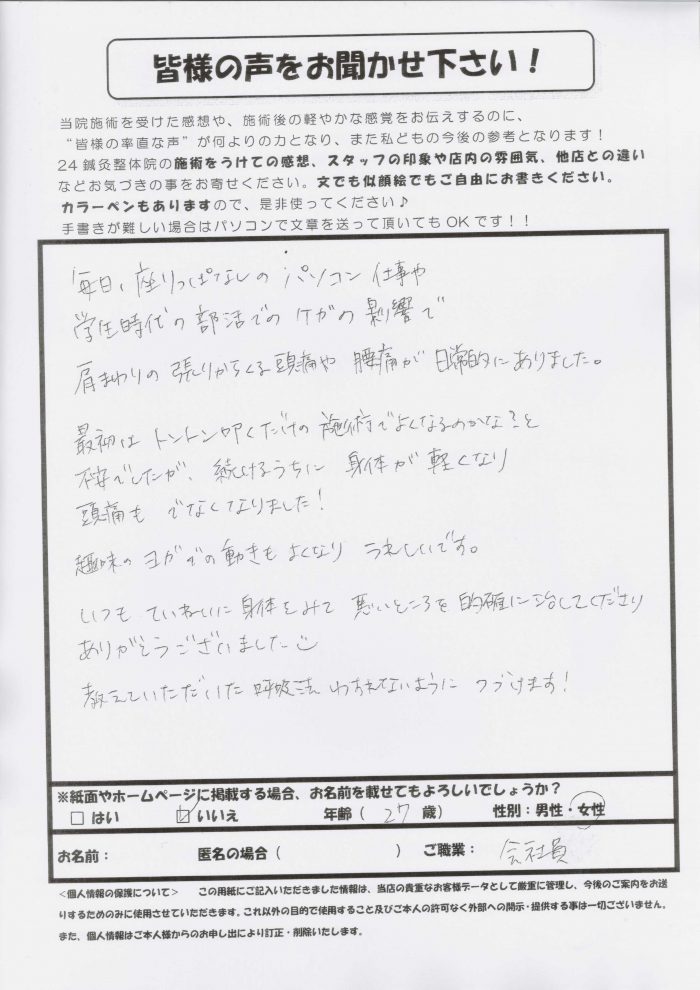 皆様の声をお聞かせ下さい！
当院施術を受けた感想や、施術後の軽やかな感覚をお伝えするのに、
“皆様の率直な声”が何よりの力となり、また私どもの今後の参考となります！
24鍼灸整体院の施術をうけての感想、スタッフの印象や店内の雰囲気、他店との違い
などお気づきの事をお寄せください。文でも似顔絵でもご自由にお書きください。
カラーペンもありますので、是非使ってください♪
手書きが難しい場合はパソコンで文章を送って頂いてもOKです！！
毎日、座りっぱなしのパソコン仕事や
学生時代の部活でのケガの影響で
肩まわりの張りからくる頭痛や腰痛が日常的にありました。
最初はトントン叩くだけの施術でよくなるのかな？と
不安でしたが、続けるうちに身体が軽くなり
頭痛もでなくなりました！
趣味のヨガでの動きもよくなりうれしいです。
いつもていねいに身体をみて悪いところを的確に治してくださり
ありがとうございました
教えていただいた呼吸法わすれないようにつづけます！
※紙面やホームページに掲載する場合、お名前を載せてもよろしいでしょうか？
□はい ☑いいえ 年齢（27歳） 性別：男性・女性
お名前： 匿名の場合（ ） ご職業：会社員
＜個人情報の保護について＞ この用紙にご記入いただきました情報は、当店の貴重なお客様データとして厳重に管理し、今後のご案内をお送
りするためのみに使用させていただきます。これ以外の目的で使用すること及びご本人の許可なく外部への開示・提供する事は一切ございません。
また、個人情報はご本人様からのお申し出により訂正・削除いたします。